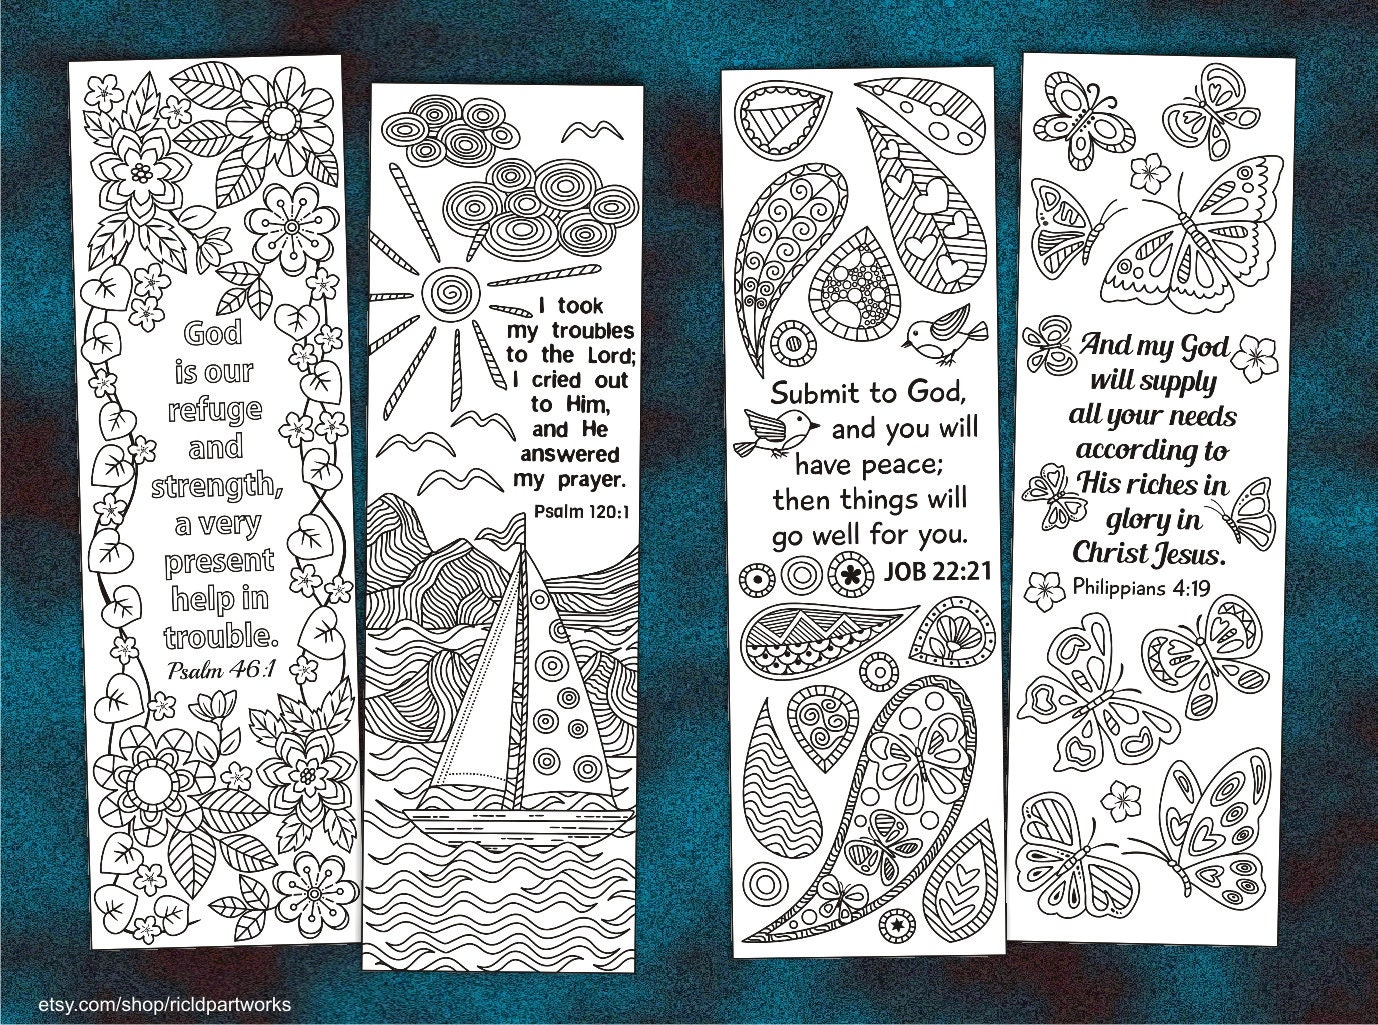 God
is our
refuge
and
strength,
a very
present
help in
trouble.
Psalm 46:1
I took
my troubles
to the Lord;
I cried out
to Him,
and He
answered
my prayer.
Psalm 120:1
Submit to God,
and you will
have peace;
then things will
go well for you.
JOB 22:21
And my God
will supply
all your needs
according to
His riches in
glory in
Christ Jesus.
Philippians 4:19
etsy.com/shop/ricldpartworks